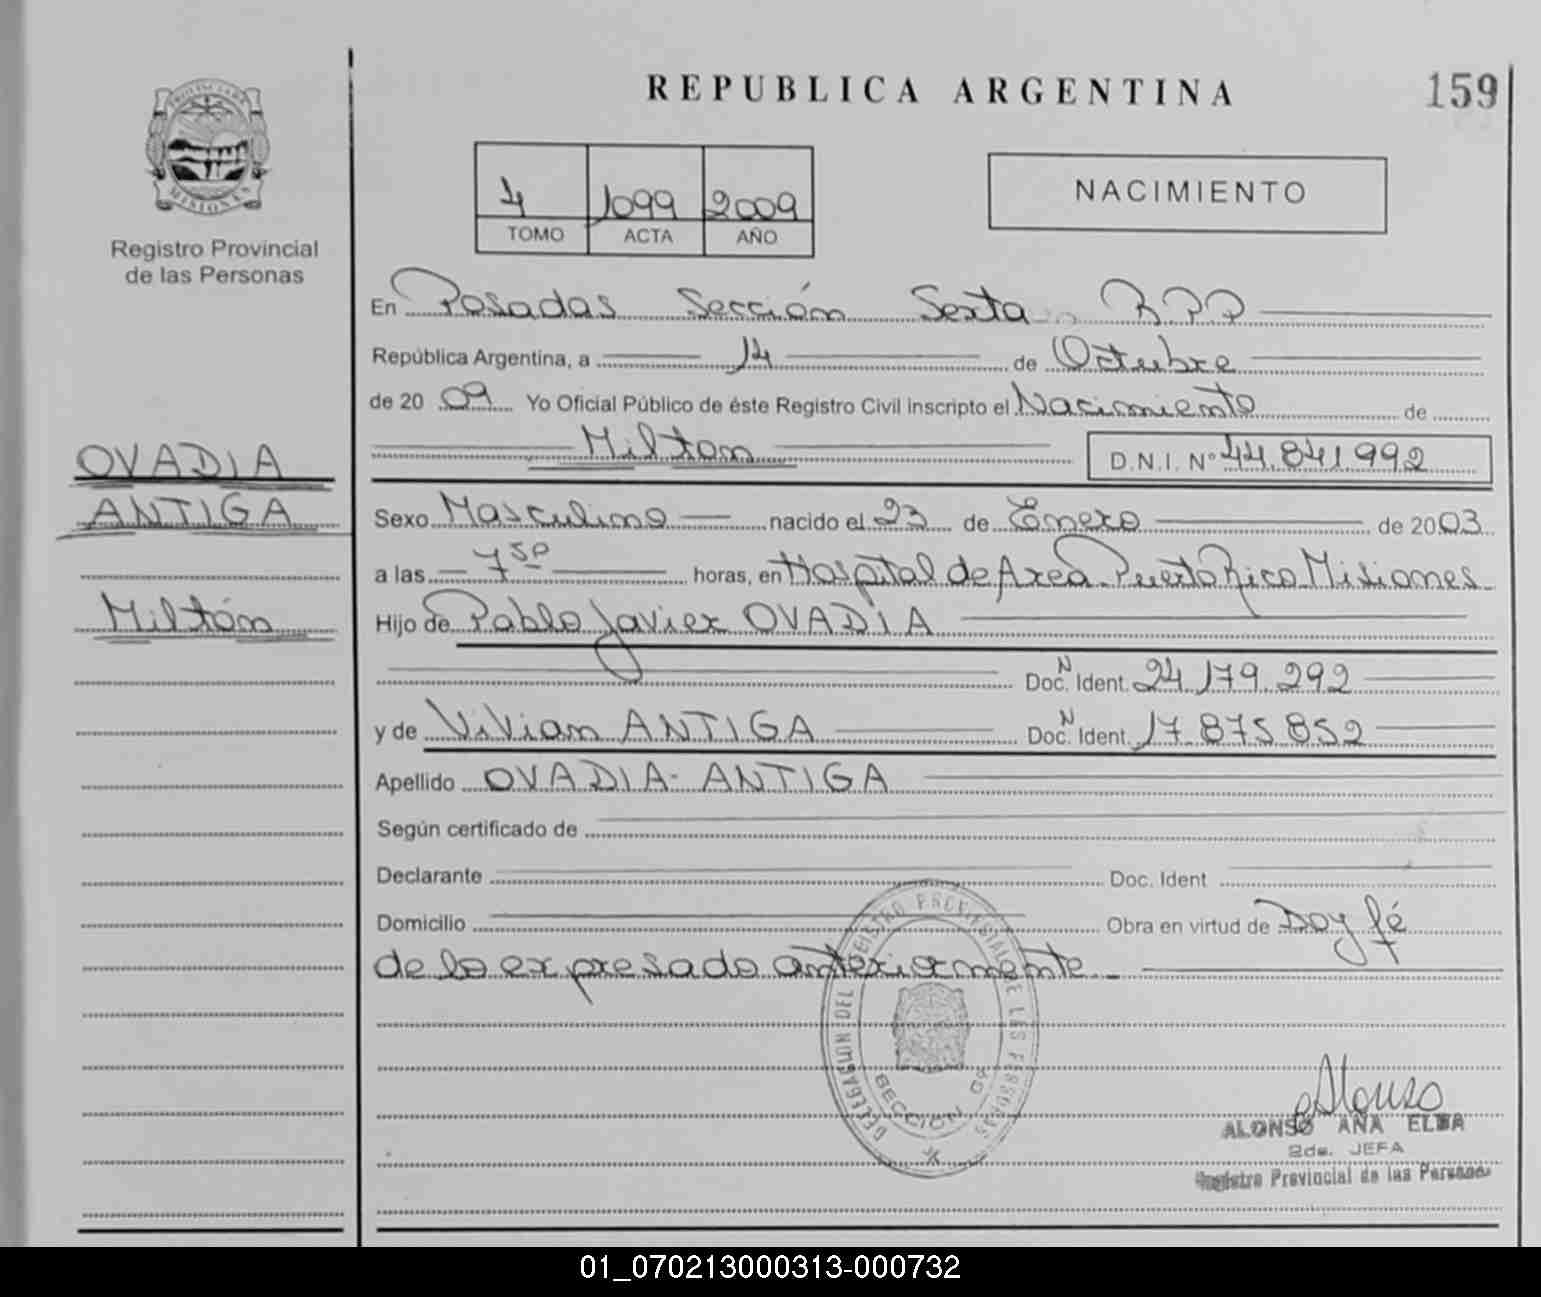 REPUBLICA ARGENTINA
159
PROVINCIA DE
MISIONES
Registro Provincial
de las Personas
4 1099 2009
TOMO ACTA AÑO
NACIMIENTO
En Posadas Sección Sexta R.P.P
República Argentina, a 14 de Octubre
de 20 09 Yo Oficial Público de éste Registro Civil Inscripto el Nacimiento de
Milton D.N.I. N° 44.841.992
OVADIA
ANTIGA
Miltón
Sexo Masculino nacido el 23 de Enero de 2003
a las 7 50 horas, en Hospital de Area Puerto Rico Misiones
Hijo de Pablo Javier OVADIA
Doc. N Ident. 24.179.292
y de Vivian ANTIGA Doc. N Ident. 17.875.852
Apellido OVADIA-ANTIGA
Según certificado de
Declarante Doc. Ident
Domicilio Obra en virtud de Doy fé
de lo expresado anteriormente
DELEGACION DEL REGISTRO PROVINCIAL DE LAS PERSONAS
SECCION 6ª
Alonso
ALONSO ANA ELBA
2da. JEFA
Registro Provincial de las Personas
01_070213000313-000732